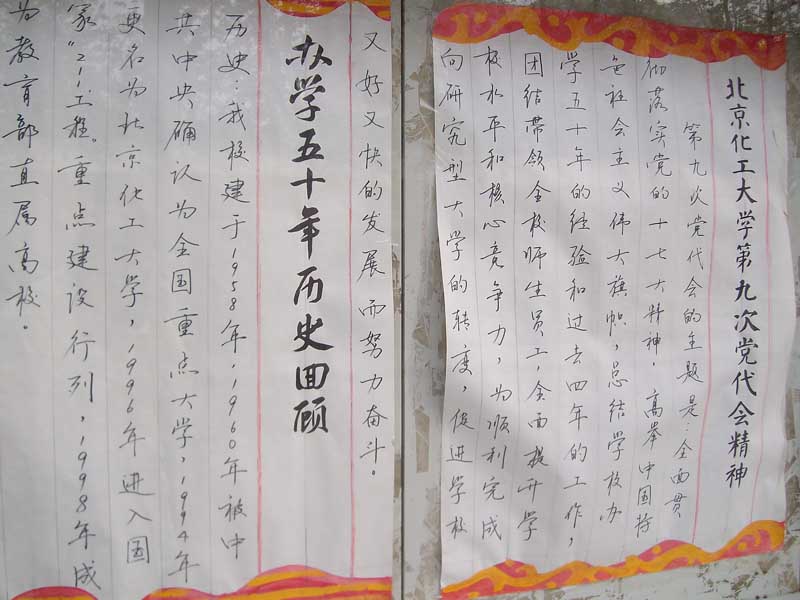 北京化工大学第九次党代会精神
第九次党代会的主题是：全面贯
彻落实党的十七大精神，高举中国特
色社会主义伟大旗帜，总结学校办
学五十年的经验和过去四年的工作，
团结带领全校师生员工，全面提升学
校水平和核心竞争力，为顺利完成
向研究型大学的转变，促进学校
又好又快的发展而努力奋斗。
办学五十年历史回顾
历史：我校建于1958年，1960年被中
共中央确认为全国重点大学，1994年
更名为北京化工大学，1996年进入国
家“211”工程。重点建设行列，1998年成
为教育部直属高校。